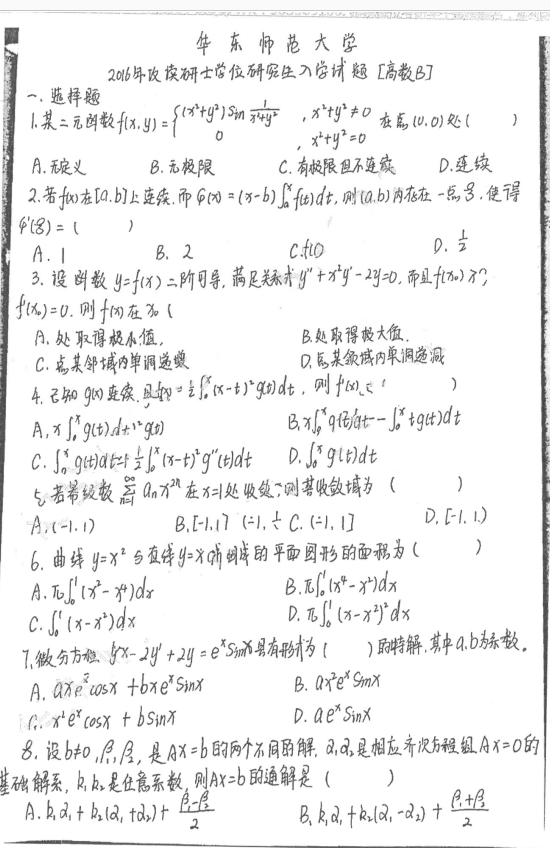 华东师范大学
2016年攻读研士学位研究生入学试题 [高数B]
一、选择题
1.某二元函数f(x,y)={(x²+y²)sin 1/(x²+y²) , x²+y²≠0 在点(0,0)处( )
0 , x²+y²=0
A.无定义 B.无极限 C.有极限但不连续 D.连续
2.若f(x)在[a.b]上连续.而φ(x)=(x-b)∫ₐˣf(t)dt,则(a.b)内存在一点ξ,使得
φ'(ξ)=( )
A. 1 B. 2 C. D. 1/2
3.设函数y=f(x)二阶可导,满足关系式y''+x²y'-2y=0,而且f(x₀)
f'(x₀)=0.则f(x)在x₀(
A.处取得极小值. B.处取得极大值.
C.点某邻域内单调递增 D.点某领域内单调递减
4.已知g(x)连续.且f(x)=½∫₀ˣ(x-t)²g(t)dt, 则f'(x) ( )
A.x∫₀ˣg(t)dt g(t) B.x∫₀ˣg(t)dt-∫₀ˣtg(t)dt
C.∫₀ˣg(t)dt+½∫₀ˣ(x-t)²g''(t)dt D.∫₀ˣg(t)dt
5.若幂级数 ∞∑n=1 aₙx²ⁿ在x=1处收敛,则其收敛域为( )
A.(-1.1) B.[-1.1] C.(-1.1] D.[-1.1)
6.曲线y=x²与直线y=x所组成的平面图形的面积为( )
A.π∫₀¹(x²-x⁴)dx B.π∫₀¹(x⁴-x²)dx
C.∫₀¹(x-x²)dx D.π∫₀¹(x-x²)²dx
7.微分方程 -2y'+2y=eˣsinx具有形式为( )的特解.其中a.b为系数。
A.axeˣcosx+bxeˣsinx B.ax²eˣsinx
C.x²eˣcosx+bsinx D.aeˣsinx
8.设b≠0,β₁,β₂,是AX=b的两个不同的解,α₁,α₂是相应齐次方程组AX=0的
基础解系,k₁,k₂是任意系数,则AX=b的通解是( )
A.k₁α₁+k₂(α₁+α₂)+(β₁-β₂)/2 B.k₁α₁+k₂(α₁-α₂)+(β₁+β₂)/2